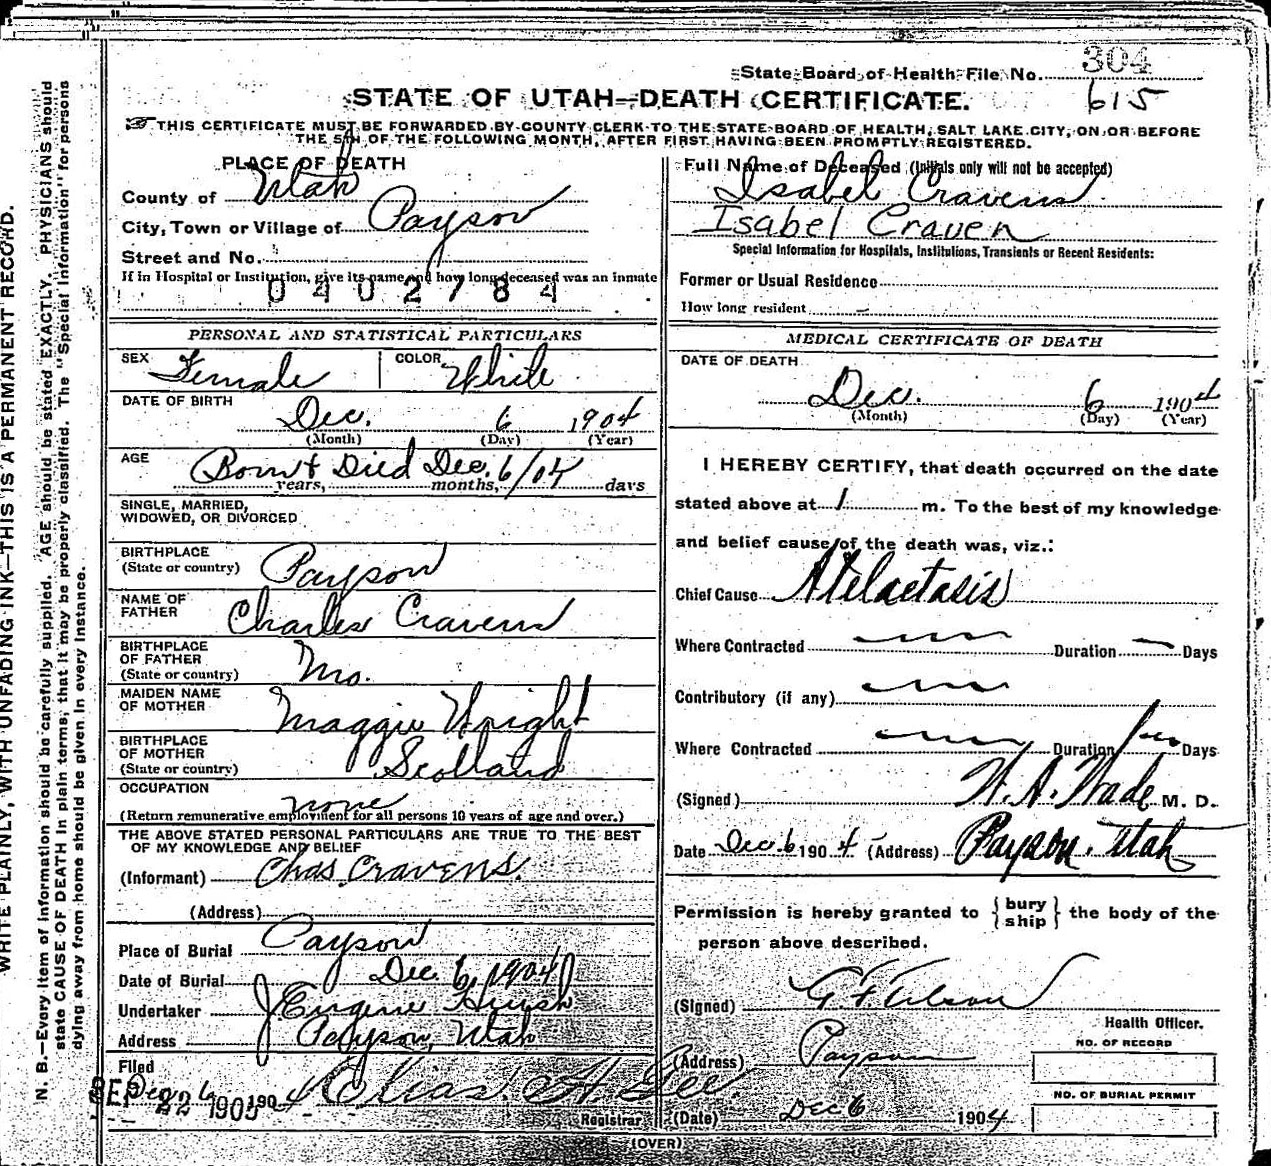 State Board of Health File No. 304
615
STATE OF UTAH—DEATH CERTIFICATE.
THIS CERTIFICATE MUST BE FORWARDED BY COUNTY CLERK TO THE STATE BOARD OF HEALTH, SALT LAKE CITY, ON OR BEFORE
THE 5TH OF THE FOLLOWING MONTH, AFTER FIRST HAVING BEEN PROMPTLY REGISTERED.
PLACE OF DEATH
County of Utah
City, Town or Village of Payson
Street and No.
If in Hospital or Institution, give its name and how long deceased was an inmate
0402784
PERSONAL AND STATISTICAL PARTICULARS
SEX Female COLOR White
DATE OF BIRTH
Dec. 6 1904
(Month) (Day) (Year)
AGE Born & Died Dec. 6/04
years, months, days
SINGLE, MARRIED,
WIDOWED, OR DIVORCED
BIRTHPLACE
(State or country) Payson
NAME OF
FATHER Charles Cravens
BIRTHPLACE
OF FATHER
(State or country) Mo.
MAIDEN NAME
OF MOTHER Maggie Wright
BIRTHPLACE
OF MOTHER
(State or country) Scotland
OCCUPATION none
(Return remunerative employment for all persons 10 years of age and over.)
THE ABOVE STATED PERSONAL PARTICULARS ARE TRUE TO THE BEST
OF MY KNOWLEDGE AND BELIEF
(Informant) Chas. Cravens.
(Address)
Place of Burial Payson
Date of Burial Dec. 6, 1904
Undertaker J Eugene
Address Payson, Utah
Filed
Dec 6 1904 Elias A. Gee
SEP 22 1905
Registrar
Full Name of Deceased (Initials only will not be accepted)
Isabel Cravens.
Isabel Craven
Special Information for Hospitals, Institutions, Transients or Recent Residents:
Former or Usual Residence
How long resident
MEDICAL CERTIFICATE OF DEATH
DATE OF DEATH
Dec. 6 1904
(Month) (Day) (Year)
I HEREBY CERTIFY, that death occurred on the date
stated above at 1 m. To the best of my knowledge
and belief cause of the death was, viz.:
Chief Cause Atelactasis
Where Contracted Duration Days
Contributory (if any)
Where Contracted Duration Days
(Signed) W. A. Wade M. D.
Date Dec. 6 1904 (Address) Payson. Utah
Permission is hereby granted to { bury
ship } the body of the
person above described.
(Signed)
Health Officer.
(Address) Payson
NO. OF RECORD
NO. OF BURIAL PERMIT
(Date) Dec 6 1904
(OVER)
WRITE PLAINLY, WITH UNFADING INK—THIS IS A PERMANENT RECORD.
N. B.—Every item of information should be carefully supplied. AGE should be stated EXACTLY. PHYSICIANS should
state CAUSE OF DEATH in plain terms, that it may be properly classified. The "Special Information" for persons
dying away from home should be given in every instance.